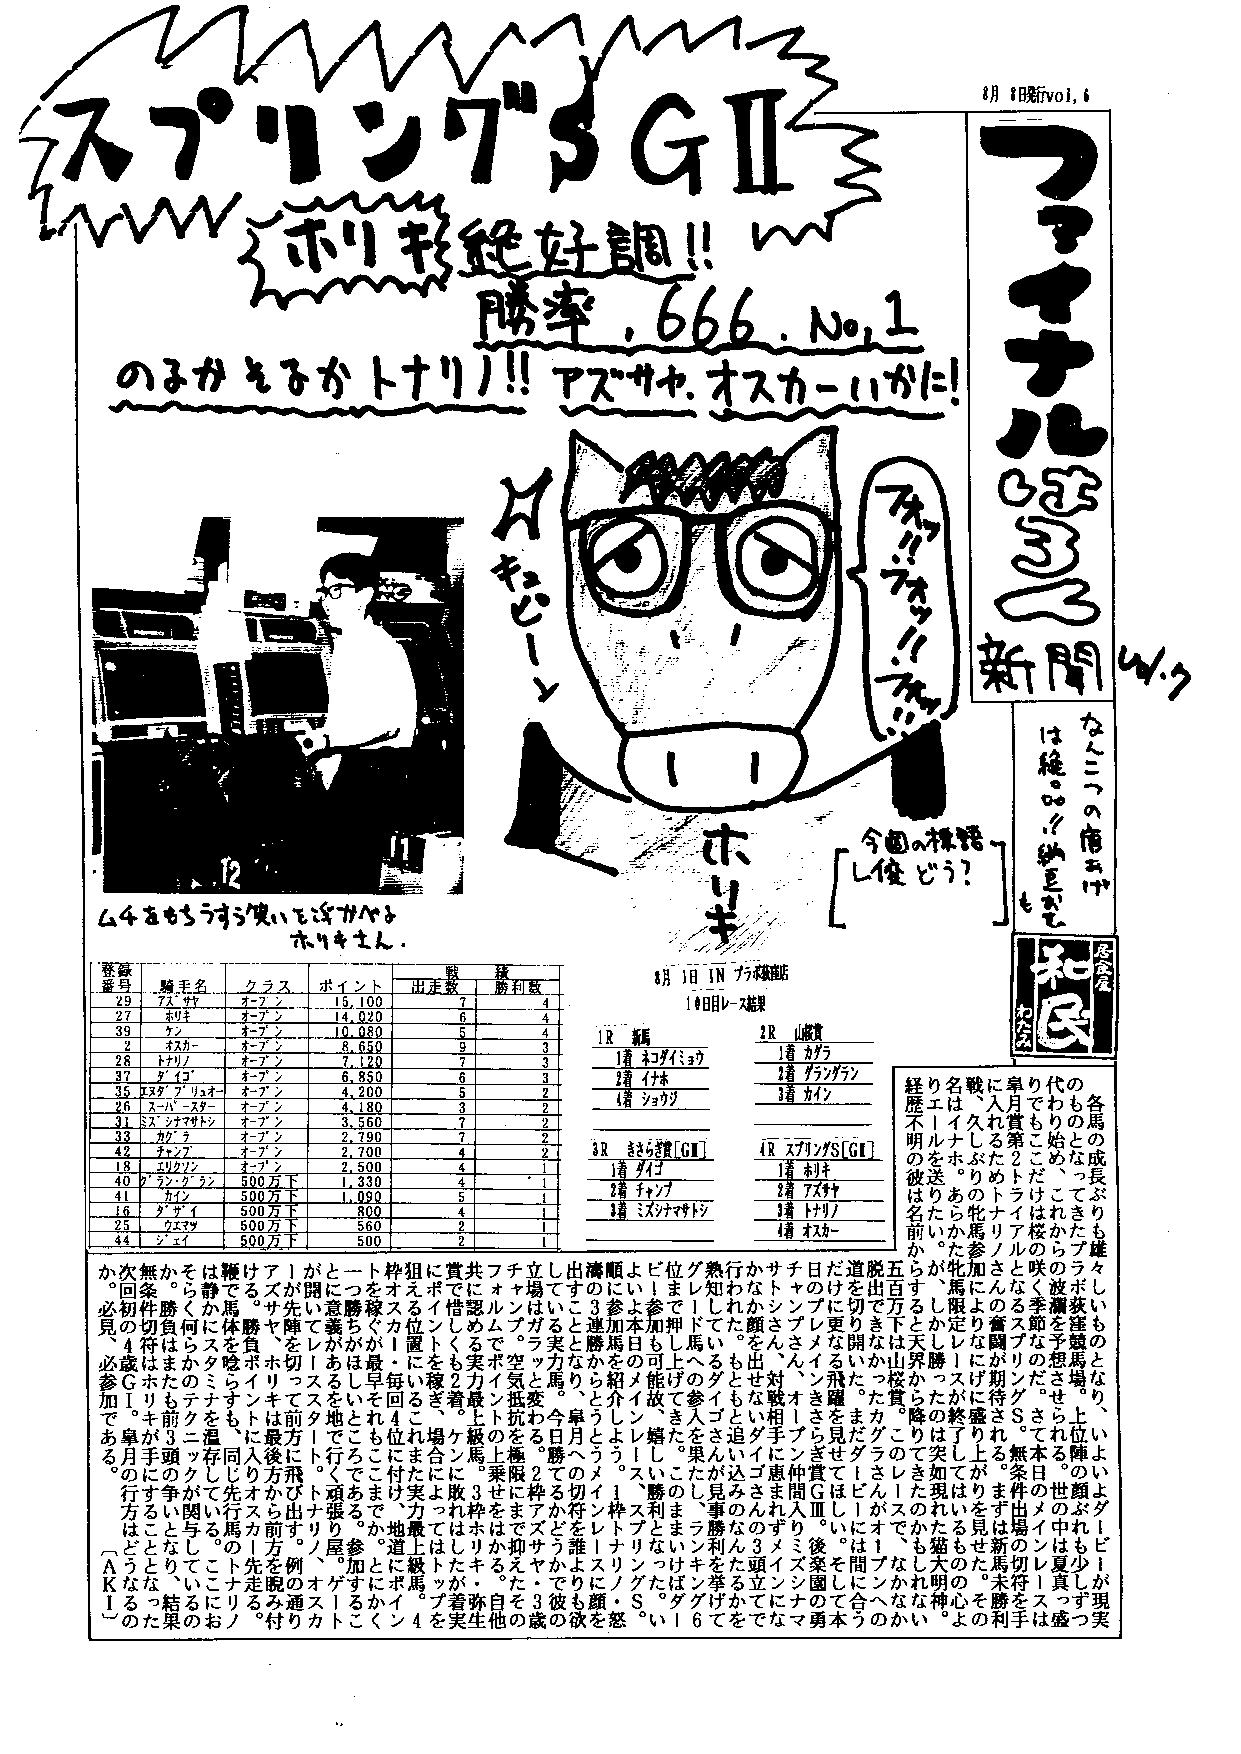 8月 8日発行vol,6
ファイナルはろん新聞
vol.7
スプリングS GⅡ
ホリキ絶好調!!
勝率 .666. No,1
のるかそるかトナリノ!! アズサヤ、オスカーいかに!
キュピーン
フォッ!!フォッ!!フォッ!!
ホリキ
今回の標語
「俺どう?
なんこつの唐あげ
は絶品!!納豆おでも
居食屋
和民
わたみ
ムチをもちうすら笑いを浮かべる
ホリキさん.
登録番号 騎手名 クラス ポイント 戦績 出走数 勝利数
29 アズサヤ オープン 15,100 7 4
27 ホリキ オープン 14,020 6 4
39 ケン オープン 10,080 5 4
2 オスカー オープン 8,650 9 3
28 トナリノ オープン 7,120 7 3
37 ダイゴ オープン 6,850 6 3
35 エヌダブリュオー オープン 4,200 5 2
26 スーパースター オープン 4,180 3 2
31 ミズシナマサトシ オープン 3,560 7 2
33 カグラ オープン 2,790 7 2
42 チャンプ オープン 2,700 4 2
18 エリクソン オープン 2,500 4 1
40 グラン・グラン 500万下 1,330 4 1
41 カイン 500万下 1,090 5 1
16 ダザイ 500万下 800 4 1
25 ウエマツ 500万下 560 2 1
44 ジェイ 500万下 500 2 1
8月 1日 IN プラボ荻窪店
10日目レース結果
1R 新馬
1着 ネコダイミョウ
2着 イナホ
4着 ショウジ
2R 山桜賞
1着 カグラ
2着 グラングラン
3着 カイン
3R きさらぎ賞[GⅢ]
1着 ダイゴ
2着 チャンプ
3着 ミズシナマサトシ
4R スプリングS[GⅡ]
1着 ホリキ
2着 アズサヤ
3着 トナリノ
4着 オスカー
各馬の成長ぶりも雄々しいものとなり、いよいよダービーが現実
のものとなってきたプラボ荻窪競馬場。上位陣の顔ぶれも少しずつ
代わり始め、これからの波瀾を予想させられる。世の中は夏真っ盛
りでもここだけは桜の咲く季節なのだ。さて本日のメインレースは
皐月賞第2トライアルとなるスプリングS。無条件出場の切符を手
に入れるためトナリノさんの奮闘が期待される。まずは新馬未勝利
戦、久しぶりの牝馬参加によりなにげに盛り上がりを見せた。その
名はイナホ。あらかた牝馬限定レースが終了してはいるものの心よ
りエールを送りたい。が、しかし勝ったのは突如現れた猫大明神。
経歴不明の彼は名前からすると天界から降りてきたのかもしれない
五百万下は山桜賞。このレースで、なかなか
脱出できなかったカグラさんがオープンへの
道を切り開いた。まだダービーには間に合う
だけに更なる飛躍を見せてほしい。そして本
日のプレメインきさらぎ賞GⅢ。後楽園の勇
チャンプさん、オープン仲間入りミズシナマ
サトシさん、対戦相手に恵まれずメインにな
かなか顔を出せないダイゴさんの3頭立てで
行われた。もともと追い込みのなんたるかを
熟知しているダイゴさんが見事勝利を挙げて
グレード馬への参入を果たし、ランキング6
位まで押し上げてきた。このままいけばダー
ビー参加も可能故、嬉しい勝利となった。い
よいよ本日のメインレース、スプリングS。
順に参加馬を紹介しよう。1枠トナリノ・怒
濤の3連勝からとうとうメインレースに顔を
出すこととなり、皐月への切符を誰よりも欲
している実力馬。今日勝てるかどうかで彼の
立場はガラッと変わる。2枠アズサヤ・3歳
チャンプ。空気抵抗を極限にまで抑えたその
フォルムでポイントの上乗せをはかる。自他
共に認める実力最上級馬。3枠ホリキ・弥生
賞で惜しくも2着。ケンに敗れはしたが着実
にポイントを稼ぎ、場合によってはトップを
狙える位置にいるこれまた実力最上級馬。4
枠オスカー・毎回4位に付け、地道にポイン
トを稼ぐが最早それもここまでか。とにかく
一つ勝ちがほしいところである。参加するこ
とに意義があるを地で行く頑張り屋。ゲート
が開いてレーススタート。トナリノ、オスカ
ーが先陣を切って前方に飛び出す。例の通り
アズサヤ、ホリキは最後方から前方を睨み付
ける。勝負ポイントに入りオスカー先走る。
鞭で馬体を唸らすも、同じ先行馬のトナリノ
は静かにスタミナを温存している。ここにお
そらく何らかのテクニックが関与しているの
か。勝負はまたも前3頭の争いとなり、結果
無条件切符はホリキが手にすることとなった
次回初の4歳GⅠ。皐月の行方はどうなるの
か。必見、必参加である。
〔AKI〕